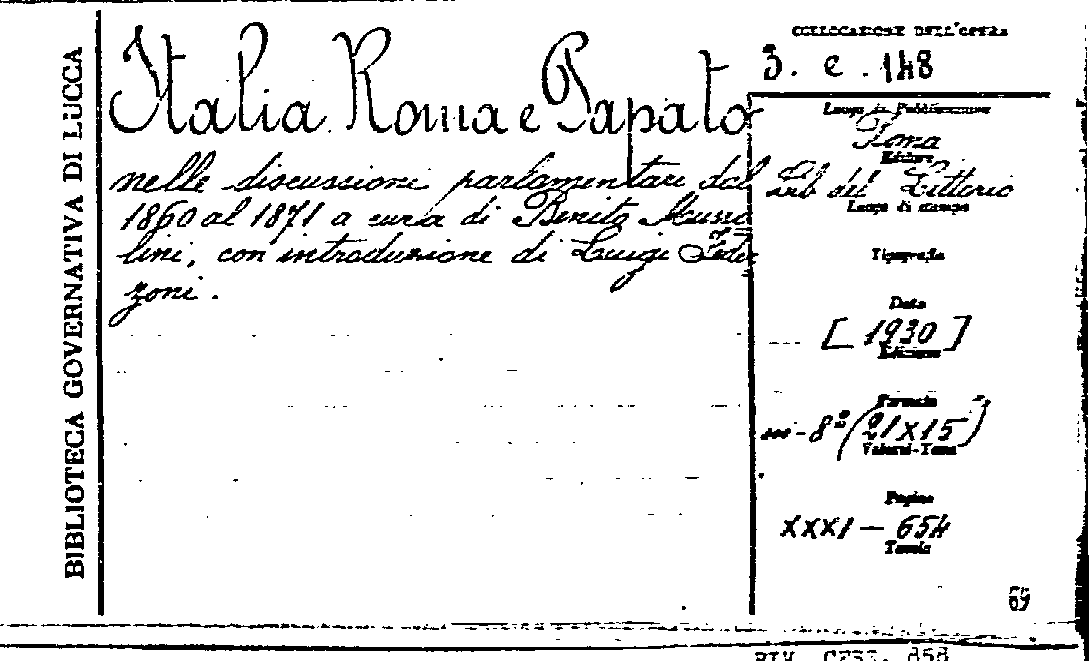 BIBLIOTECA GOVERNATIVA DI LUCCA
Italia Roma e Papato
nelle discussioni parlamentari dal
1860 al 1871 a cura di Benito Musso
lini, con introduzione di Luigi Feder
zoni.
COLLOCAZIONE DELL'OPERA
3. e. 148
Luogo di Pubblicazione
Roma
Editore
Lib del Littorio
Luogo di stampa
Tipografia
Data
[1930]
Edizione
Formato
in-8° (21x15)
Volumi-Tomo
Pagine
XXXI - 654
Tavole
RIV. CESI. 858